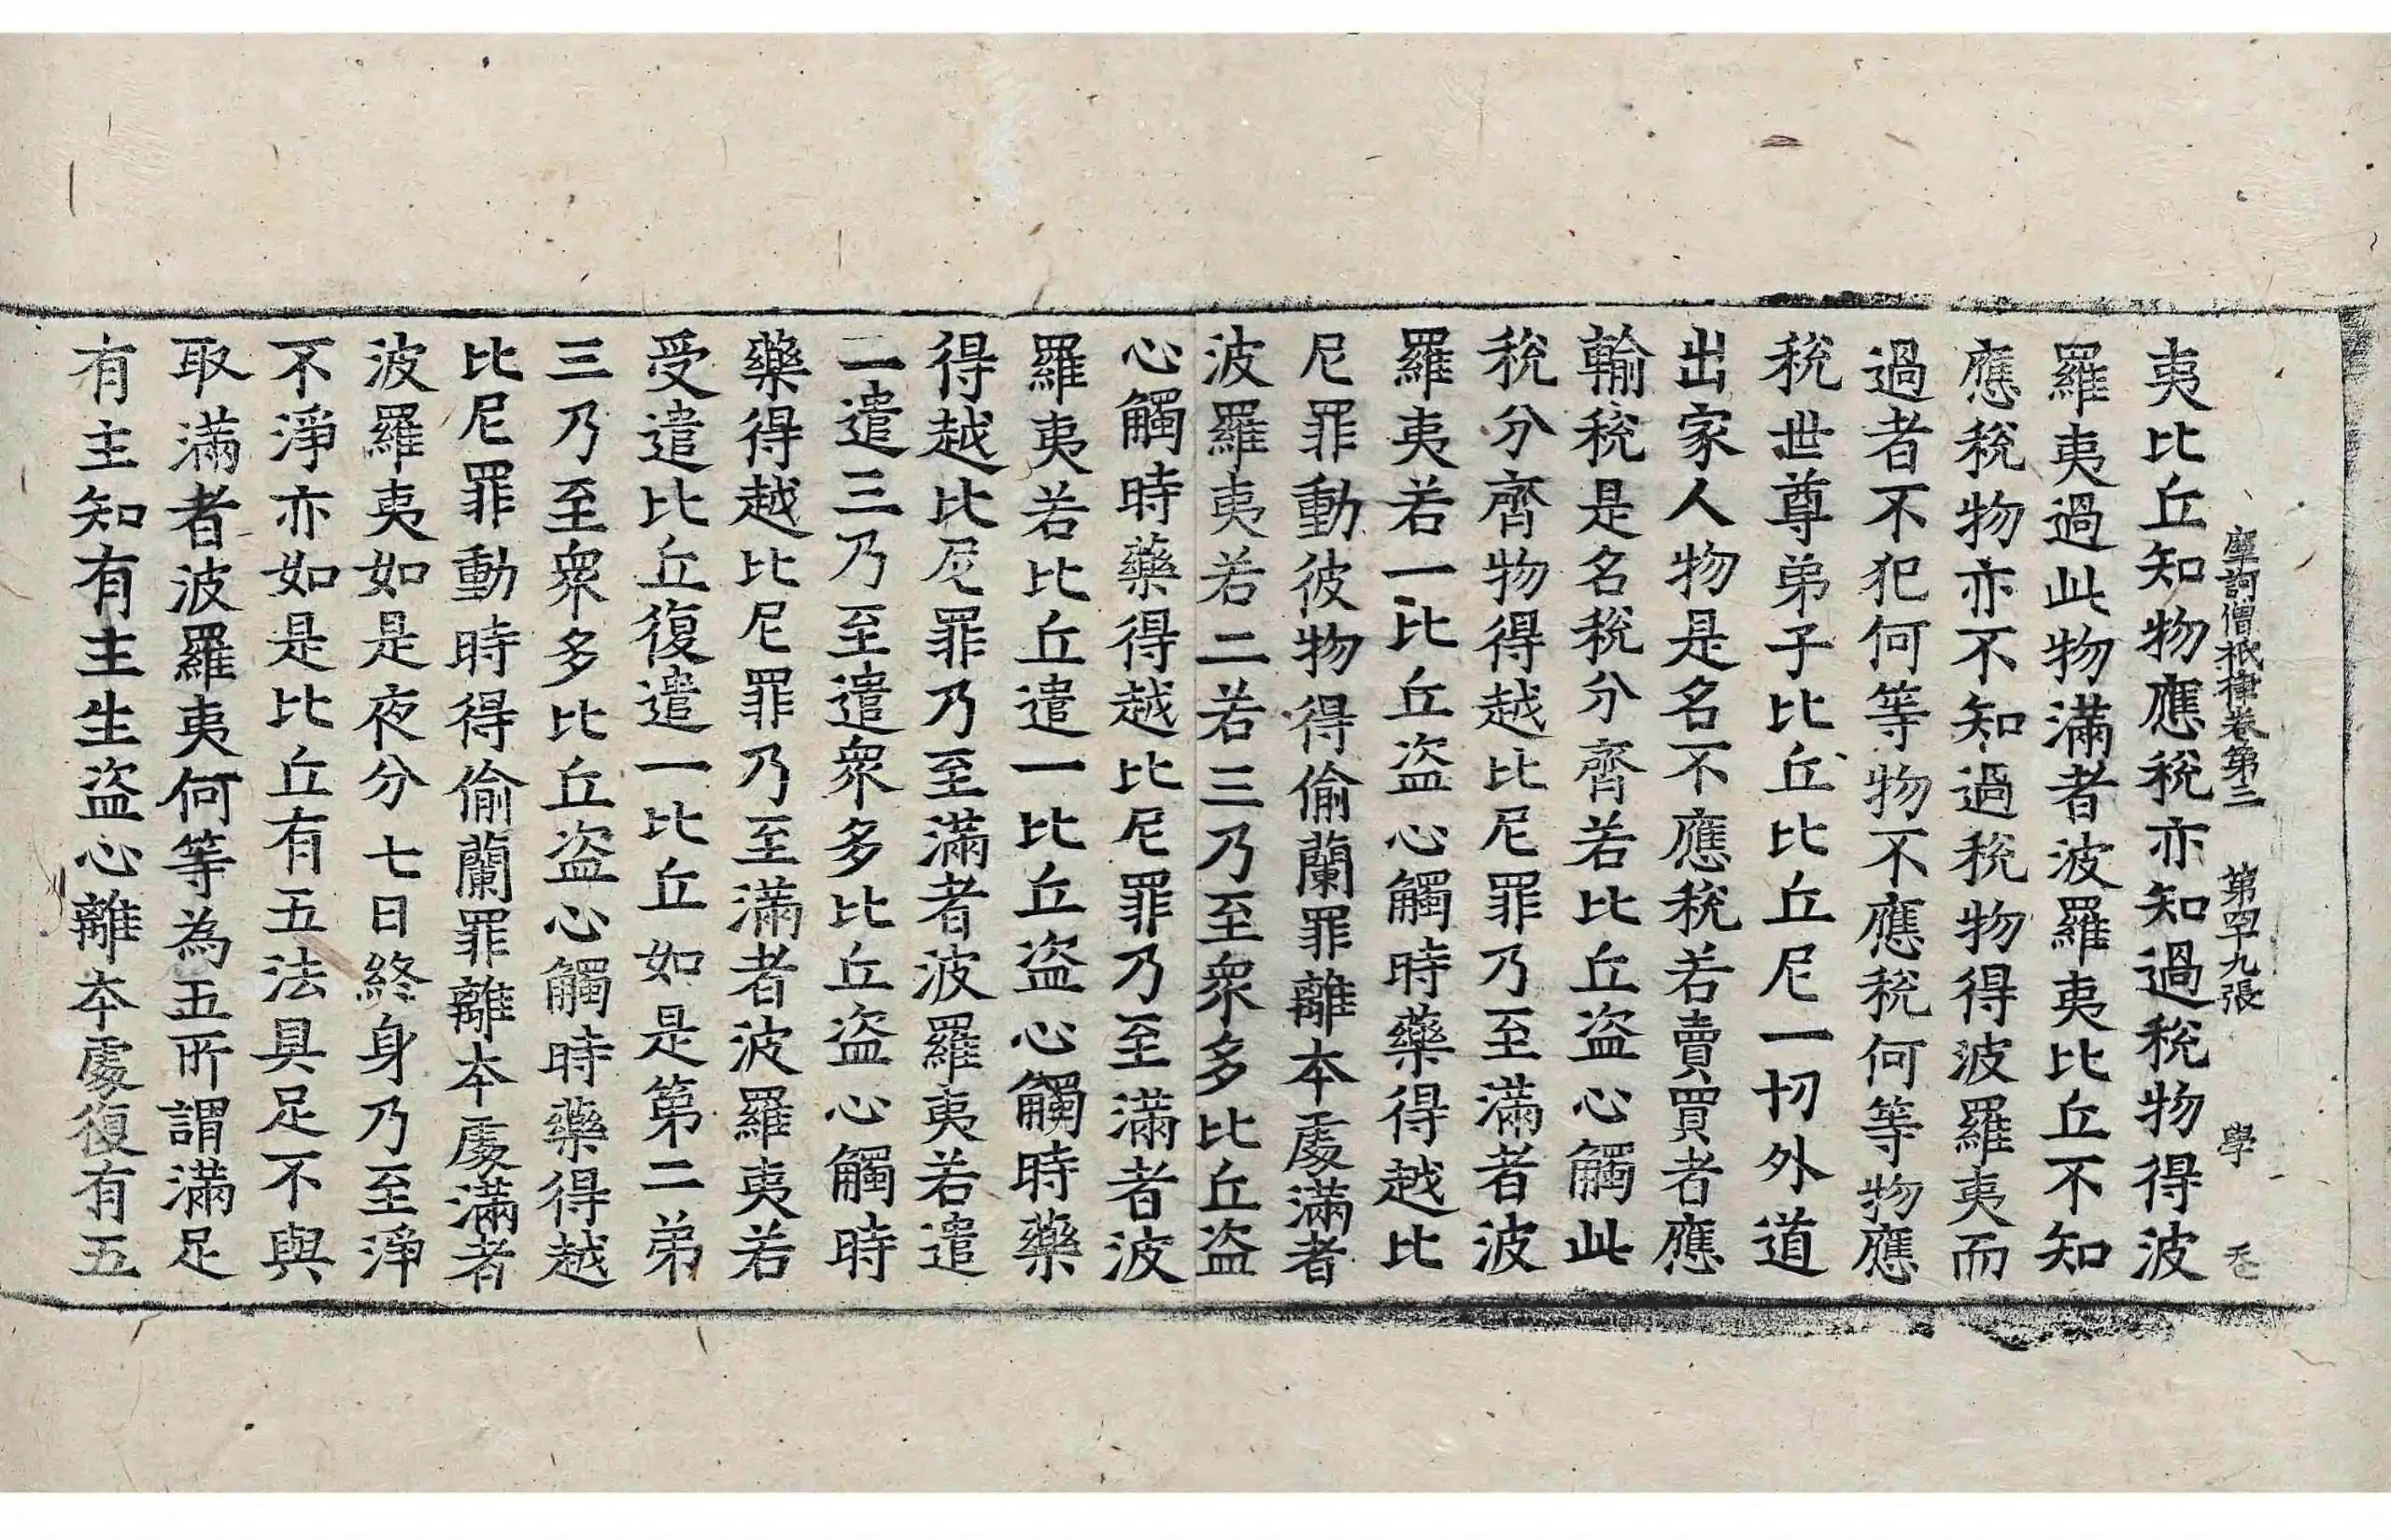 摩訶僧祇律卷第三　第四十九張　學
夷比丘知物應稅亦知過稅物得波
羅夷過此物滿者波羅夷比丘不知
應稅物亦不知過稅物得波羅夷而
過者不犯何等物不應稅何等物應
稅世尊弟子比丘比丘尼一切外道
出家人物是名不應稅若賣買者應
輸稅是名稅分齊若比丘盜心觸此
稅分齊物得越比尼罪乃至滿者波
羅夷若一比丘盜心觸時藥得越比
尼罪動彼物得偷蘭罪離本處滿者
波羅夷若二若三乃至眾多比丘盜
心觸時藥得越比尼罪乃至滿者波
羅夷若比丘遣一比丘盜心觸時藥
得越比尼罪乃至滿者波羅夷若遣
二遣三乃至遣眾多比丘盜心觸時
藥得越比尼罪乃至滿者波羅夷若
受遣比丘復遣一比丘如是第二弟
三乃至眾多比丘盜心觸時藥得越
比尼罪動時得偷蘭罪離本處滿者
波羅夷如是夜分七日終身乃至淨
不淨亦如是比丘有五法具足不與
取滿者波羅夷何等為五所謂滿足
有主知有主生盜心離本處復有五